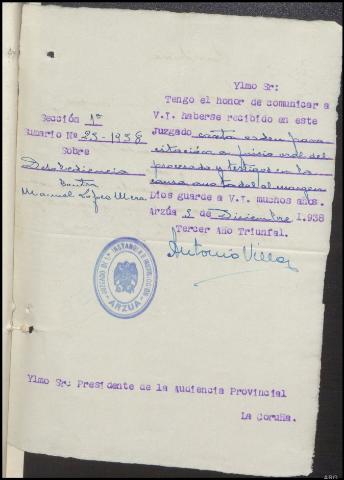 Sección 1ª
Sumario Nº 25-1938
Sobre
Desobediencia
Contra
Manuel López Mera
Ylmo Sr:
Tengo el honor de comunicar a
V.I. haberse recibido en este
Juzgado carta orden para
citación a juicio oral del
procesado y testigos en la
causa anotada al margen
Dios guarde a V.I. muchos años.
Arzúa 9 de Diciembre 1.938
Tercer Año Triunfal.
Antonio Villar
JUZGADO DE 1ª INSTANCIA E INSTRUCCION
ARZUA
Ylmo Sr: Presidente de la Audiencia Provincial
La Coruña.